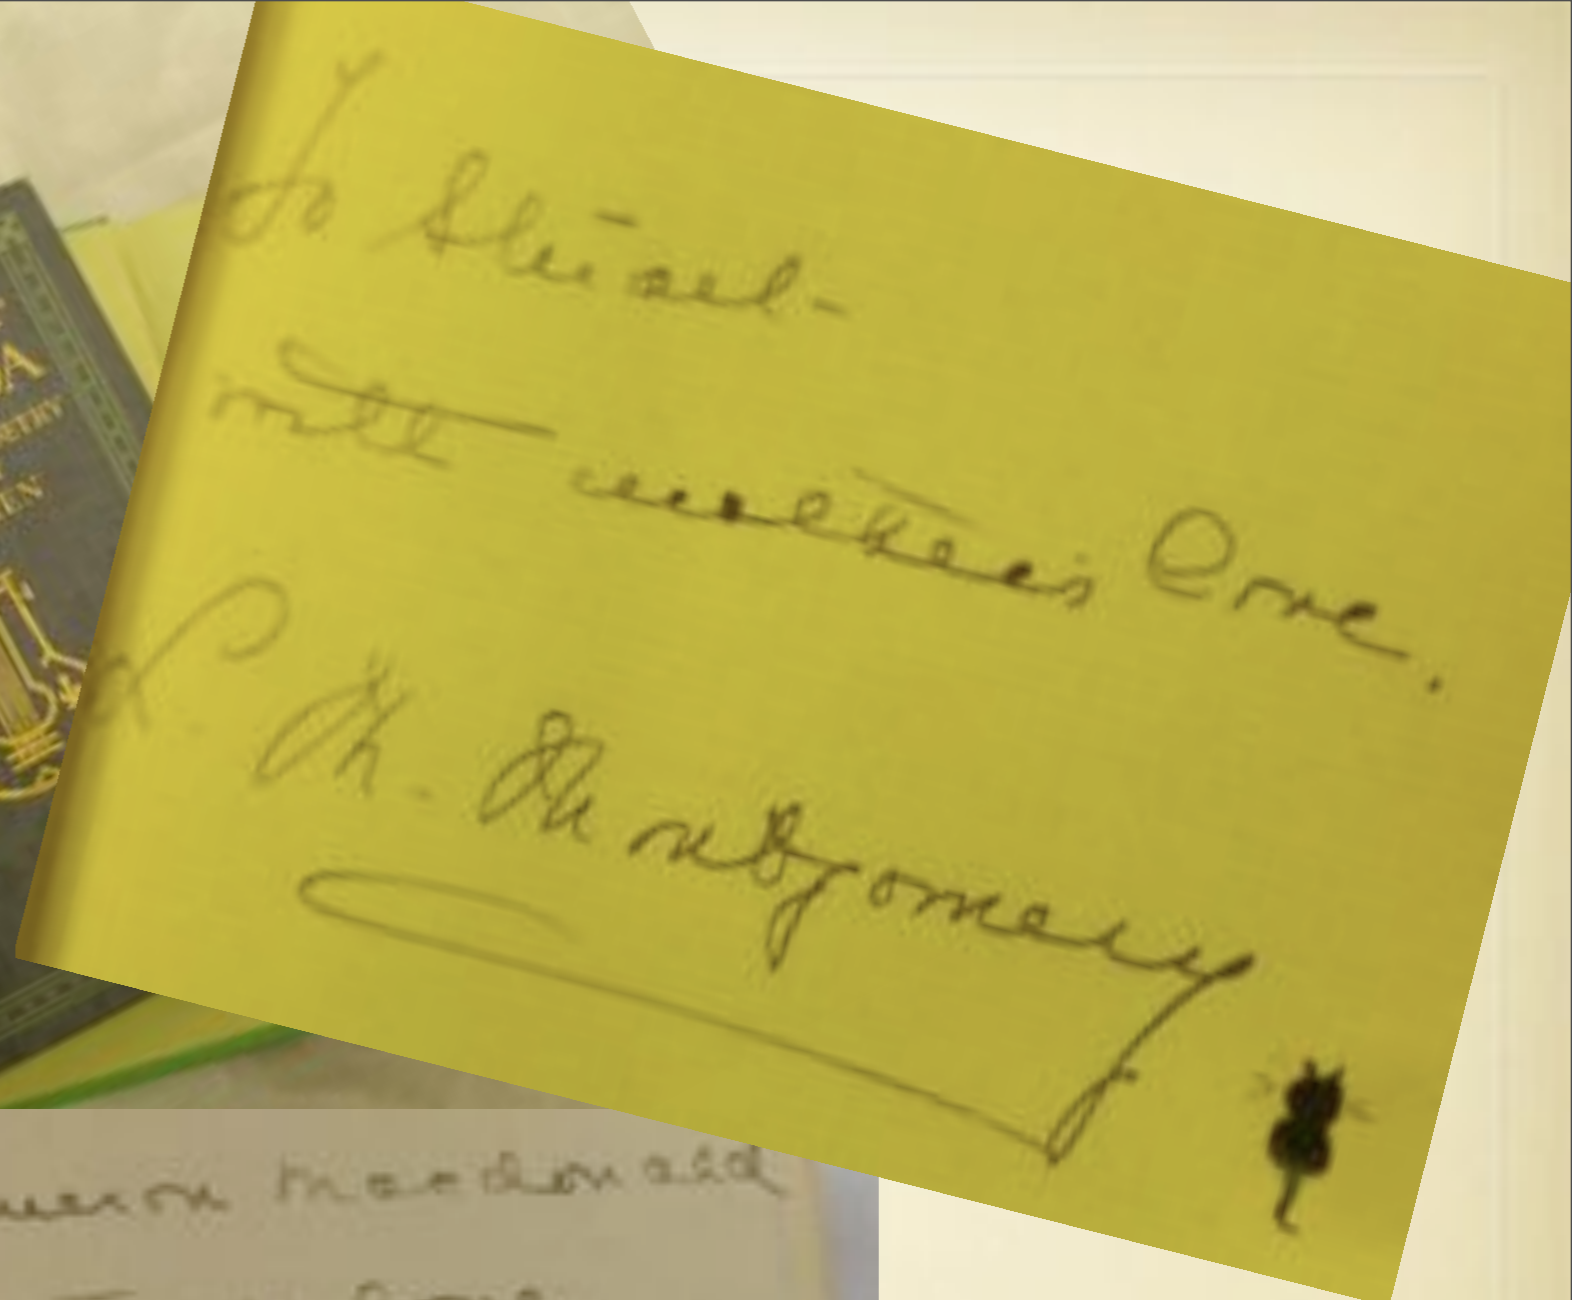 To Stuart –
with mother's love.
L. M. Montgomery
A
EN
macdonald